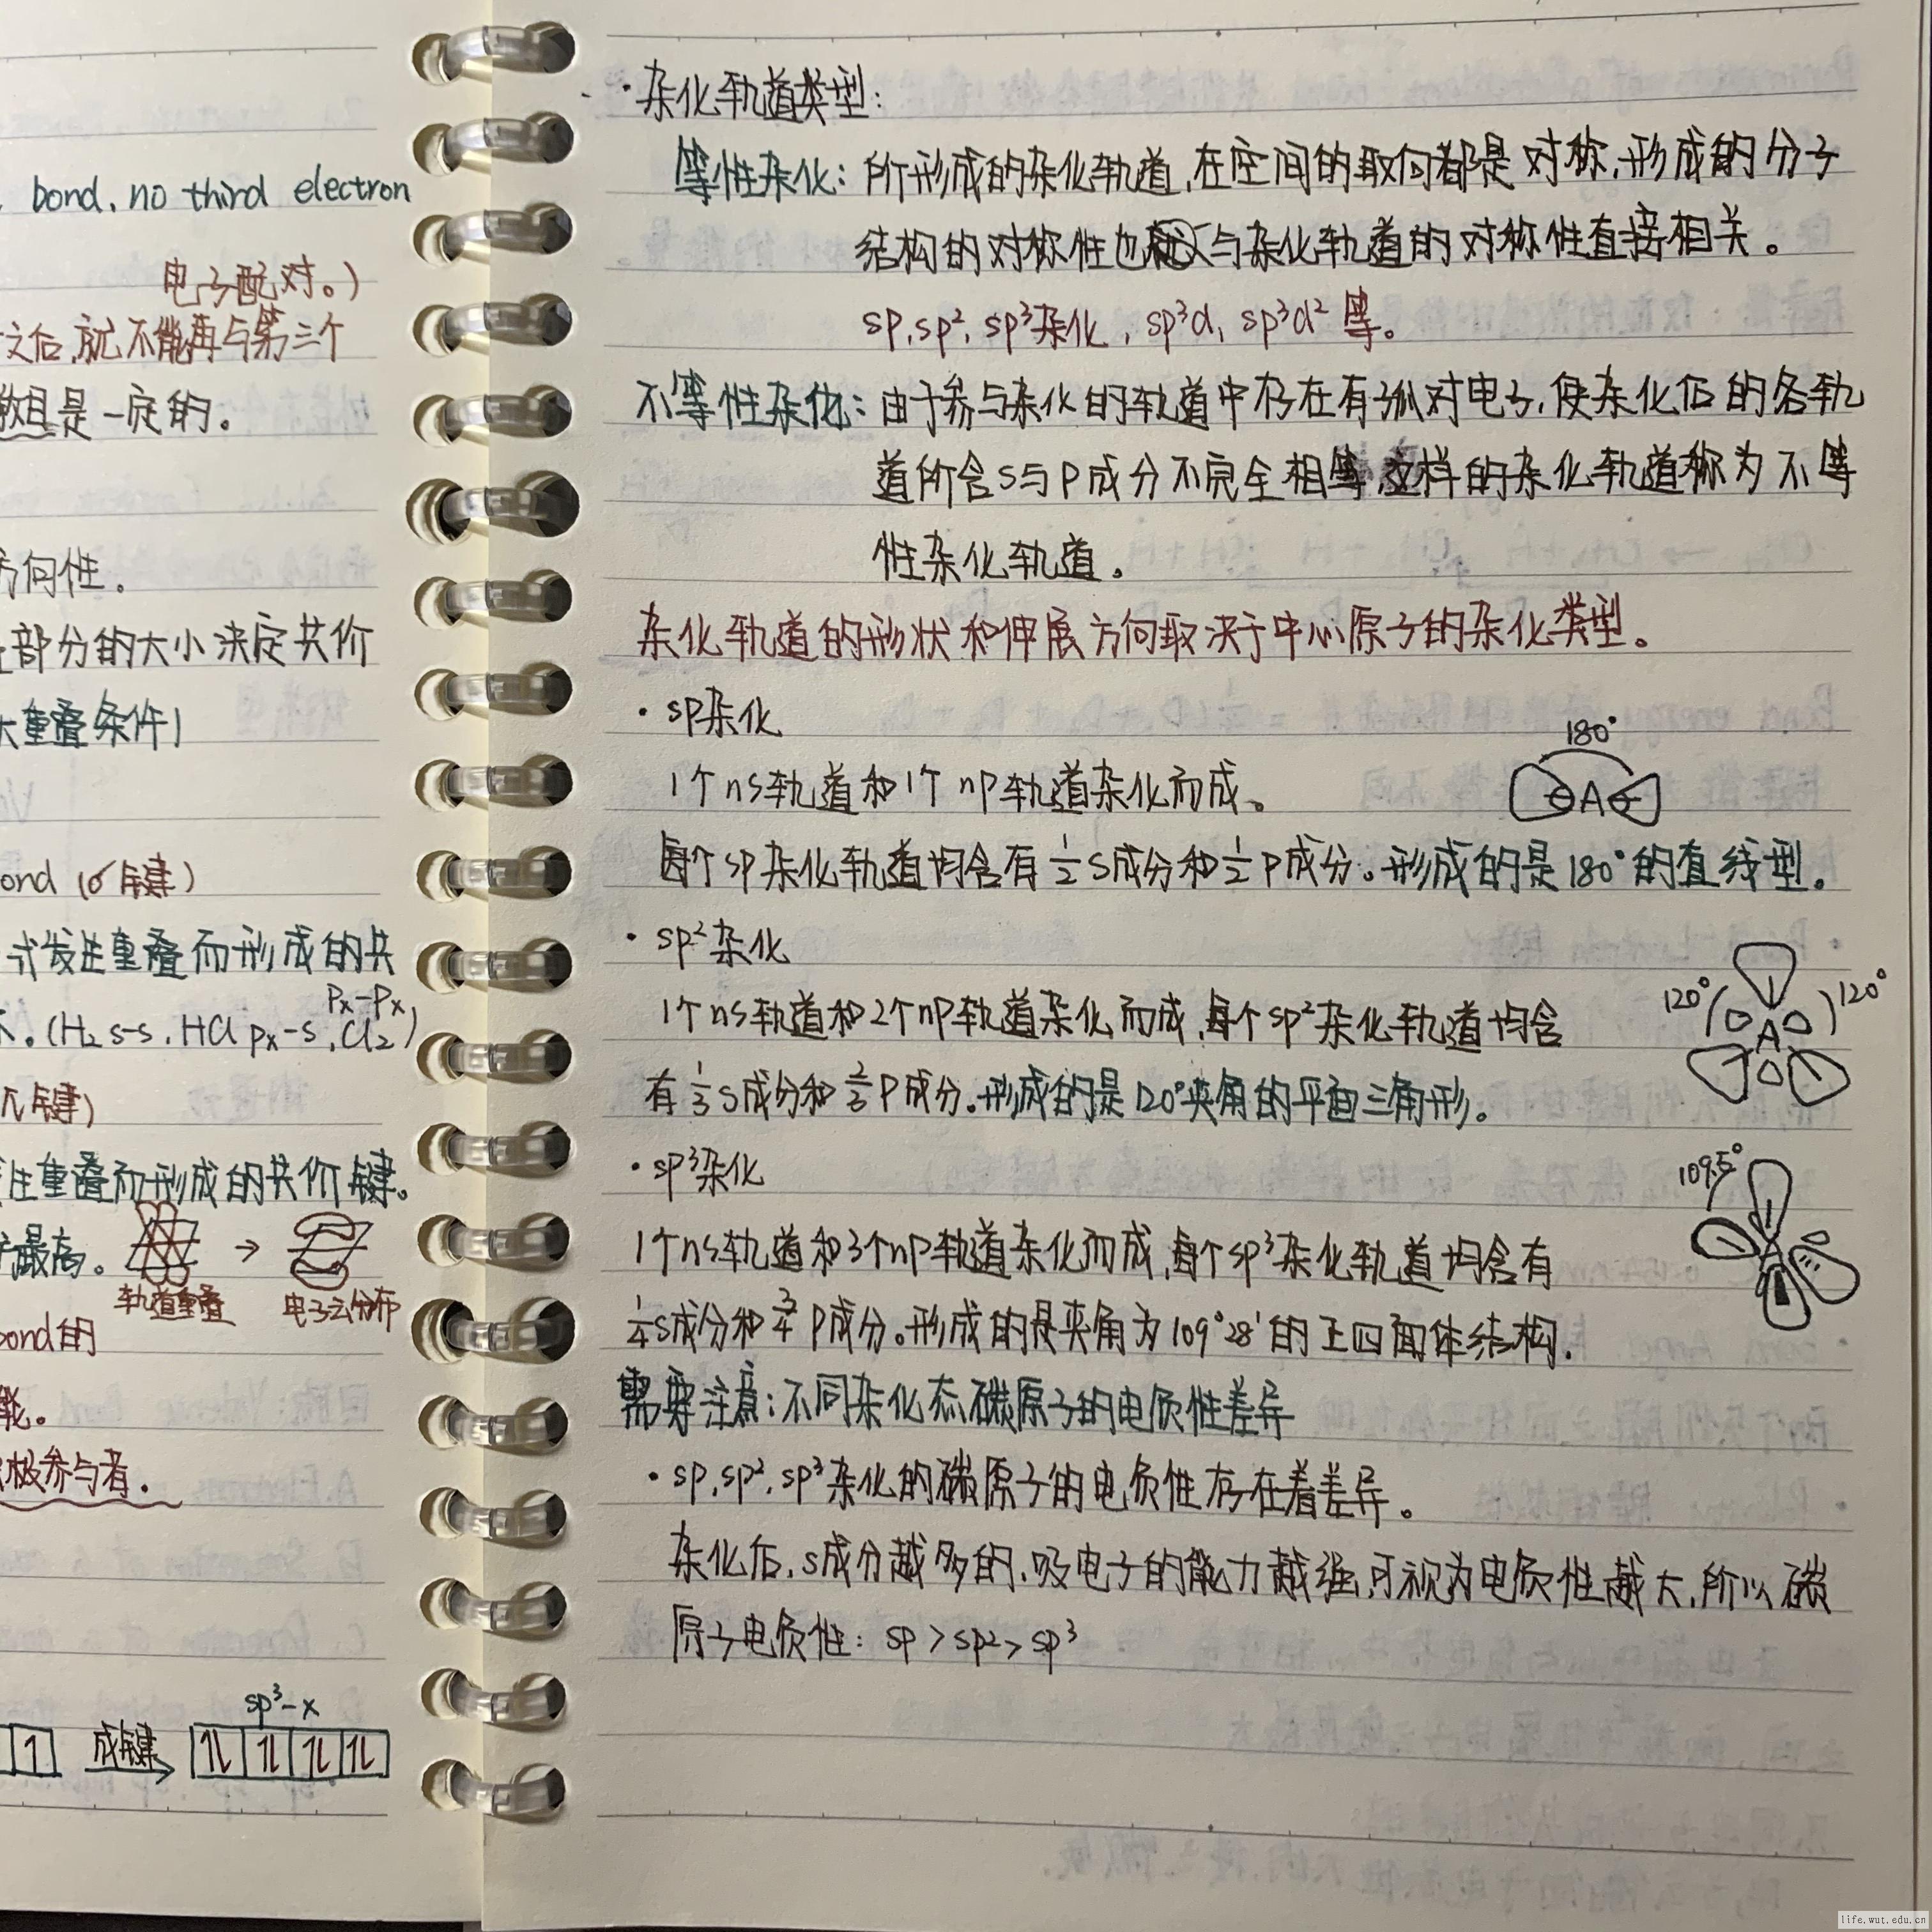 bond, no third electron
电子配对。)
之后,就不能再与第三个
数目是一定的。
方向性。
部分的大小决定共价
大重叠条件)
ond (σ键)
式发生重叠而形成的共
px-px
(H₂ s-s, HCl px-s, Cl₂)
π键)
生重叠而形成的共价键。
最高。
轨道重叠 → 电子云分布
bond的
能。
积极参与者.
sp³-x
1 成键 1L 1L 1L 1L
·杂化轨道类型:
等性杂化: 所形成的杂化轨道,在空间的取向都是对称,形成的分子
结构的对称性也与杂化轨道的对称性直接相关。
sp, sp², sp³杂化, sp³d, sp³d²等。
不等性杂化: 由于参与杂化的轨道中存在有孤对电子,使杂化后的各轨
道所含s与p成分不完全相等,这样的杂化轨道称为不等
性杂化轨道。
杂化轨道的形状和伸展方向取决于中心原子的杂化类型。
·sp杂化
180°
1个ns轨道和1个np轨道杂化而成。
A
每个sp杂化轨道均含有½s成分和½p成分。形成的是180°的直线型。
·sp²杂化
120° A 120°
1个ns轨道和2个np轨道杂化而成,每个sp²杂化轨道均含
有⅓s成分和⅔p成分。形成的是120°夹角的平面三角形。
·sp³杂化
109.5°
A
1个ns轨道和3个np轨道杂化而成,每个sp³杂化轨道均含有
¼s成分和¾p成分。形成的是夹角为109°28'的正四面体结构.
需要注意:不同杂化态碳原子的电负性差异
·sp, sp², sp³杂化的碳原子的电负性存在着差异。
杂化后,s成分越多的,吸电子的能力越强,可视为电负性越大,所以碳
原子电负性: sp > sp² > sp³
life.wut.edu.cn